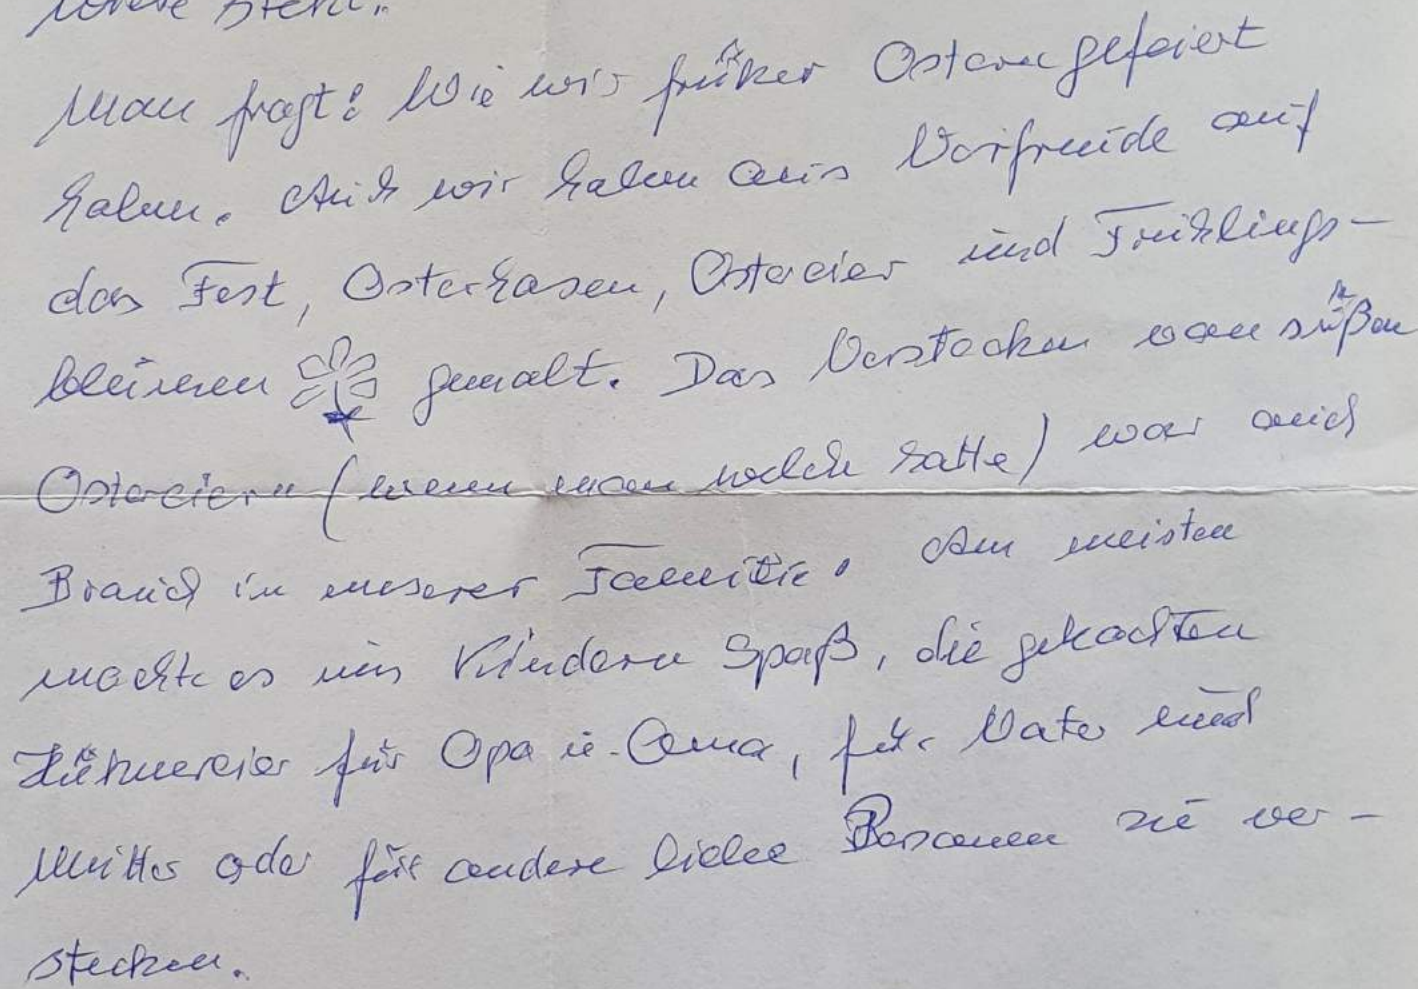 Man fragt: Wie wir früher Ostern gefeiert
haben. Auch wir haben aus Vorfreude auf
das Fest, Osterhasen, Ostereier und Frühlings-
blumen gemalt. Das Verstecken von süßen
Ostereiern (wenn man welche hatte) war auch
Brauch in unserer Familie. Am meisten
machte es uns Kindern Spaß, die gekochten
Hühnereier für Opa u. Oma, für Vater und
Mutter oder für andere liebe Personen zu ver-
stecken.